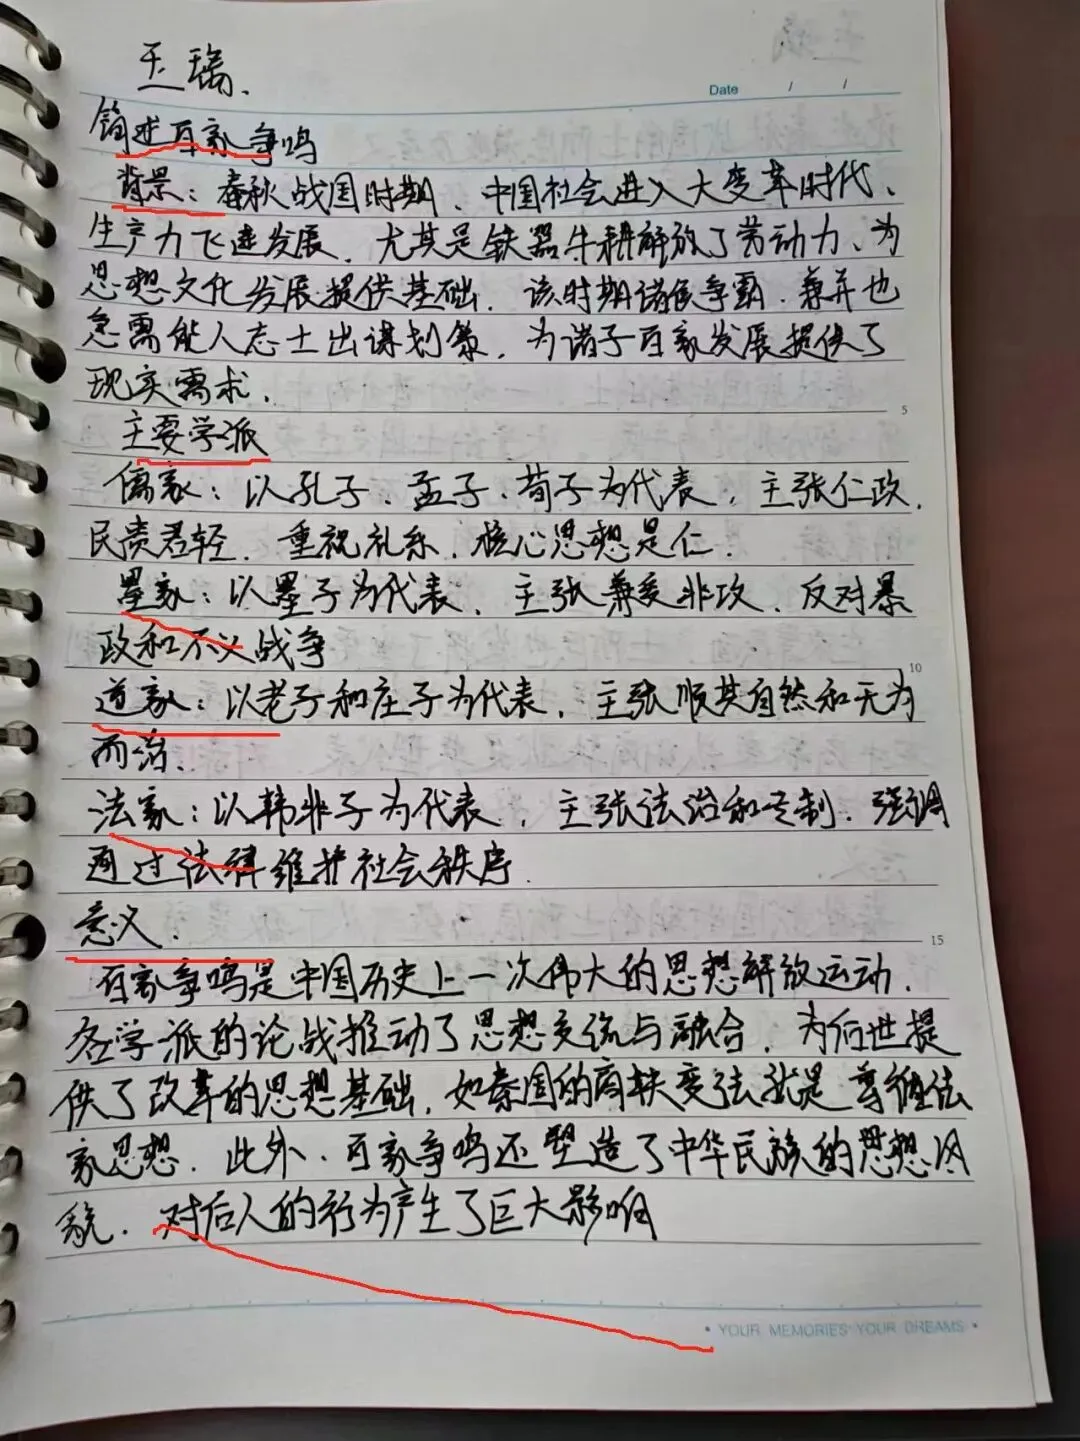 王瑞.
Date / /
简述百家争鸣
背景：春秋战国时期、中国社会进入大变革时代、
生产力飞速发展，尤其是铁器牛耕解放了劳动力、为
思想文化发展提供基础. 该时期诸侯争霸.兼并也
急需能人志士出谋划策，为诸子百家发展提供了
现实需求.
5
主要学派
儒家：以孔子、孟子、荀子为代表，主张仁政.
民贵君轻. 重视礼乐，核心思想是仁.
墨家：以墨子为代表，主张兼爱非攻. 反对暴
政和不义战争
10
道家：以老子和庄子为代表，主张顺其自然和无为
而治.
法家：以韩非子为代表，主张法治和专制. 强调
通过法律维护社会秩序.
意义.
15
百家争鸣是中国历史上一次伟大的思想解放运动.
各学派的论战推动了思想交流与融合，为后世提
供了改革的思想基础. 如秦国的商鞅变法就是尊循法
家思想. 此外、百家争鸣还塑造了中华民族的思想风
貌. 对后人的行为产生了巨大影响
• YOUR MEMORIES YOUR DREAMS •